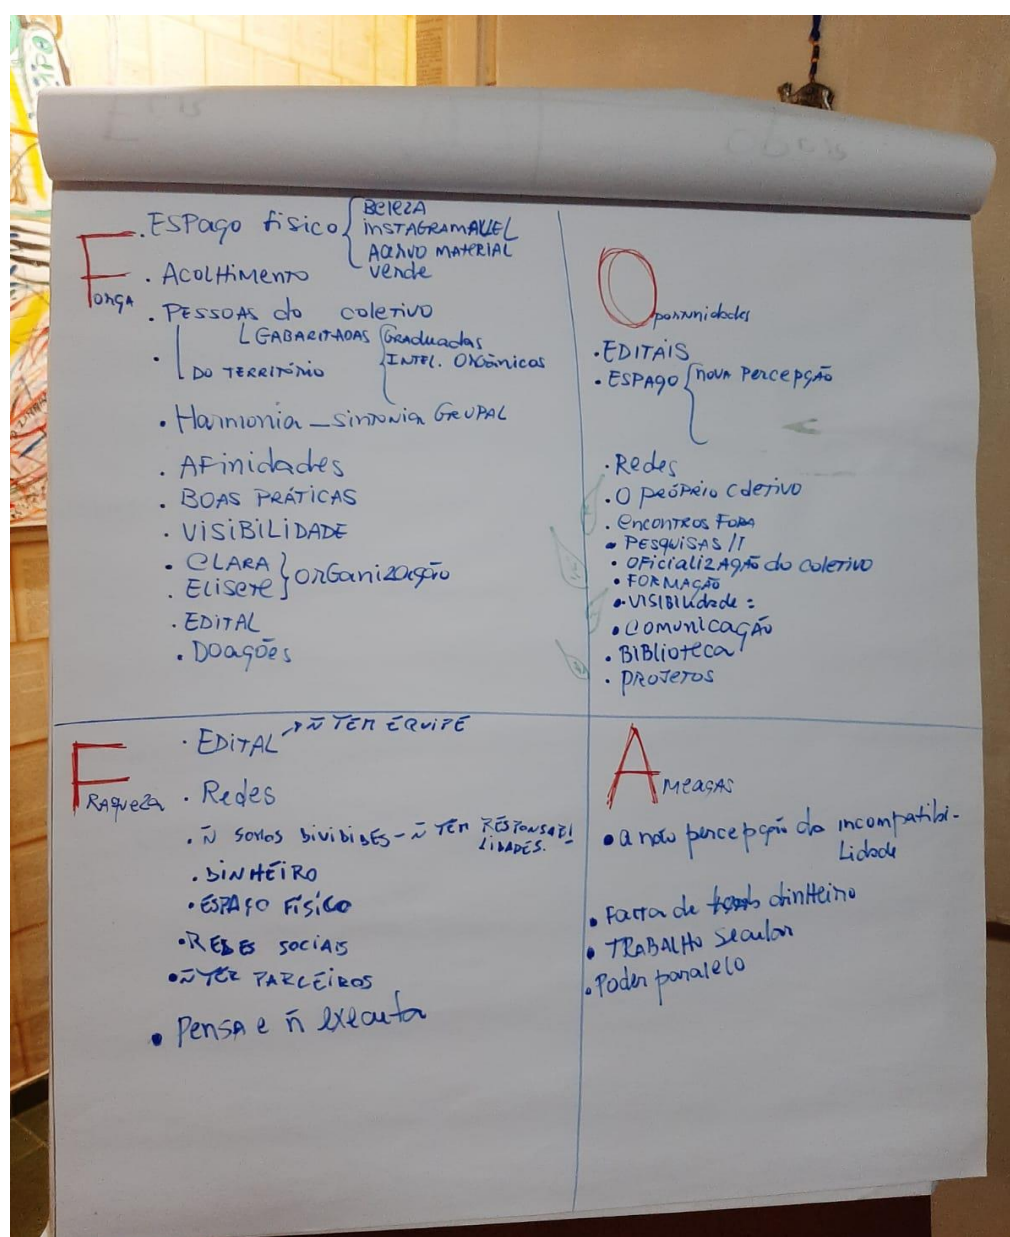 Força
. ESPAÇO físico { BELEZA
INSTAGRAMAVEL
ACERVO MATERIAL
verde
. ACOLHIMENTO
. PESSOAS do coletivo
GABARITADAS { GRADUADAS
INTEL. ORGÂNICOS
. DO TERRITÓRIO
. Harmonia - SINTONIA GRUPAL
. AFINIDADES
. BOAS PRÁTICAS
. VISIBILIDADE
. CLARA
. Elisete } ORGANIZAÇÃO
. EDITAL
. DOAÇÕES
Oportunidades
. EDITAIS
. ESPAÇO { NOVA PERCEPÇÃO
. Redes
. O PRÓPRIO COLETIVO
. ENCONTROS FORA
. PESQUISAS
. OFICIALIZAÇÃO do COLETIVO
. FORMAÇÃO
. VISIBILIDADE :
. COMUNICAÇÃO
. BIBLIOTECA
. PROJETOS
FRAQUEZA
. EDITAL → Ñ TEM EQUIPE
. Redes
. Ñ SOMOS DIVIDIDES - Ñ TEM RESPONSABI
LIDADES.
. DINHEIRO
. ESPAÇO FÍSICO
. REDES SOCIAIS
. Ñ TER PARCEIROS
. Pensa e ñ executa
AMEAÇAS
. a não percepção da incompatibi-
Lidade
. Falta de dinHeiro
. TRABALHO Secular
. Poder paralelo